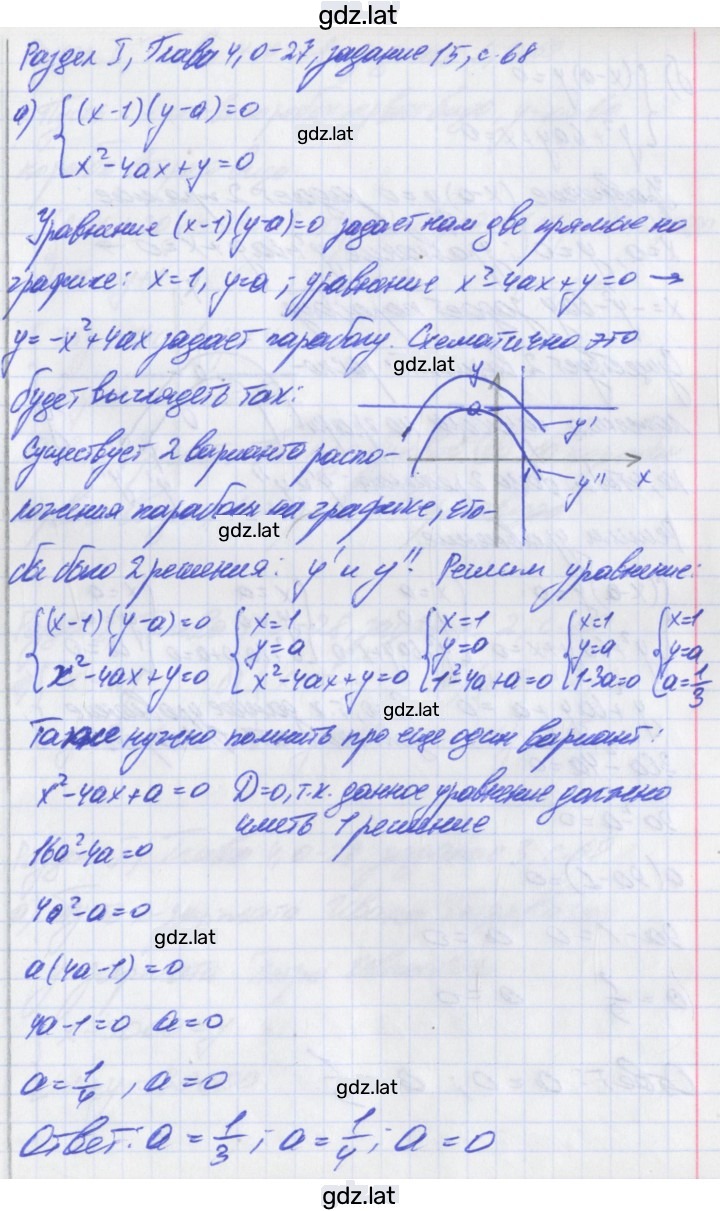 gdz.lat
Раздел I, Глава 4, О-27, задание 15, с. 68
а) { (x-1)(y-a)=0
gdz.lat
x²-4ax+y=0
Уравнение (x-1)(y-a)=0 задает нам две прямые на
графике: x=1, y=a; уравнение x²-4ax+y=0 →
y=-x²+4ax задает параболу. Схематично это
gdz.lat
y
будет выглядеть так:
a
y'
Существует 2 варианта распо-
x
y''
ложения парабол на графике, что-
gdz.lat
бы было 2 решения: y' и y''. Решим уравнение:
{ (x-1)(y-a)=0 { x=1 { x=1 { x=1 { x=1
y=a y=0 y=a y=a
x²-4ax+y=0 x²-4ax+y=0 1²-4a+a=0 1-3a=0 a=1/3
gdz.lat
Также нужно помнить про еще один вариант:
x²-4ax+a=0 D=0, т.к. данное уравнение должно
иметь 1 решение
16a²-4a=0
4a²-a=0
gdz.lat
a(4a-1)=0
4a-1=0 a=0
a=1/4, a=0
gdz.lat
Ответ: a=1/3; a=1/4; a=0
gdz.lat